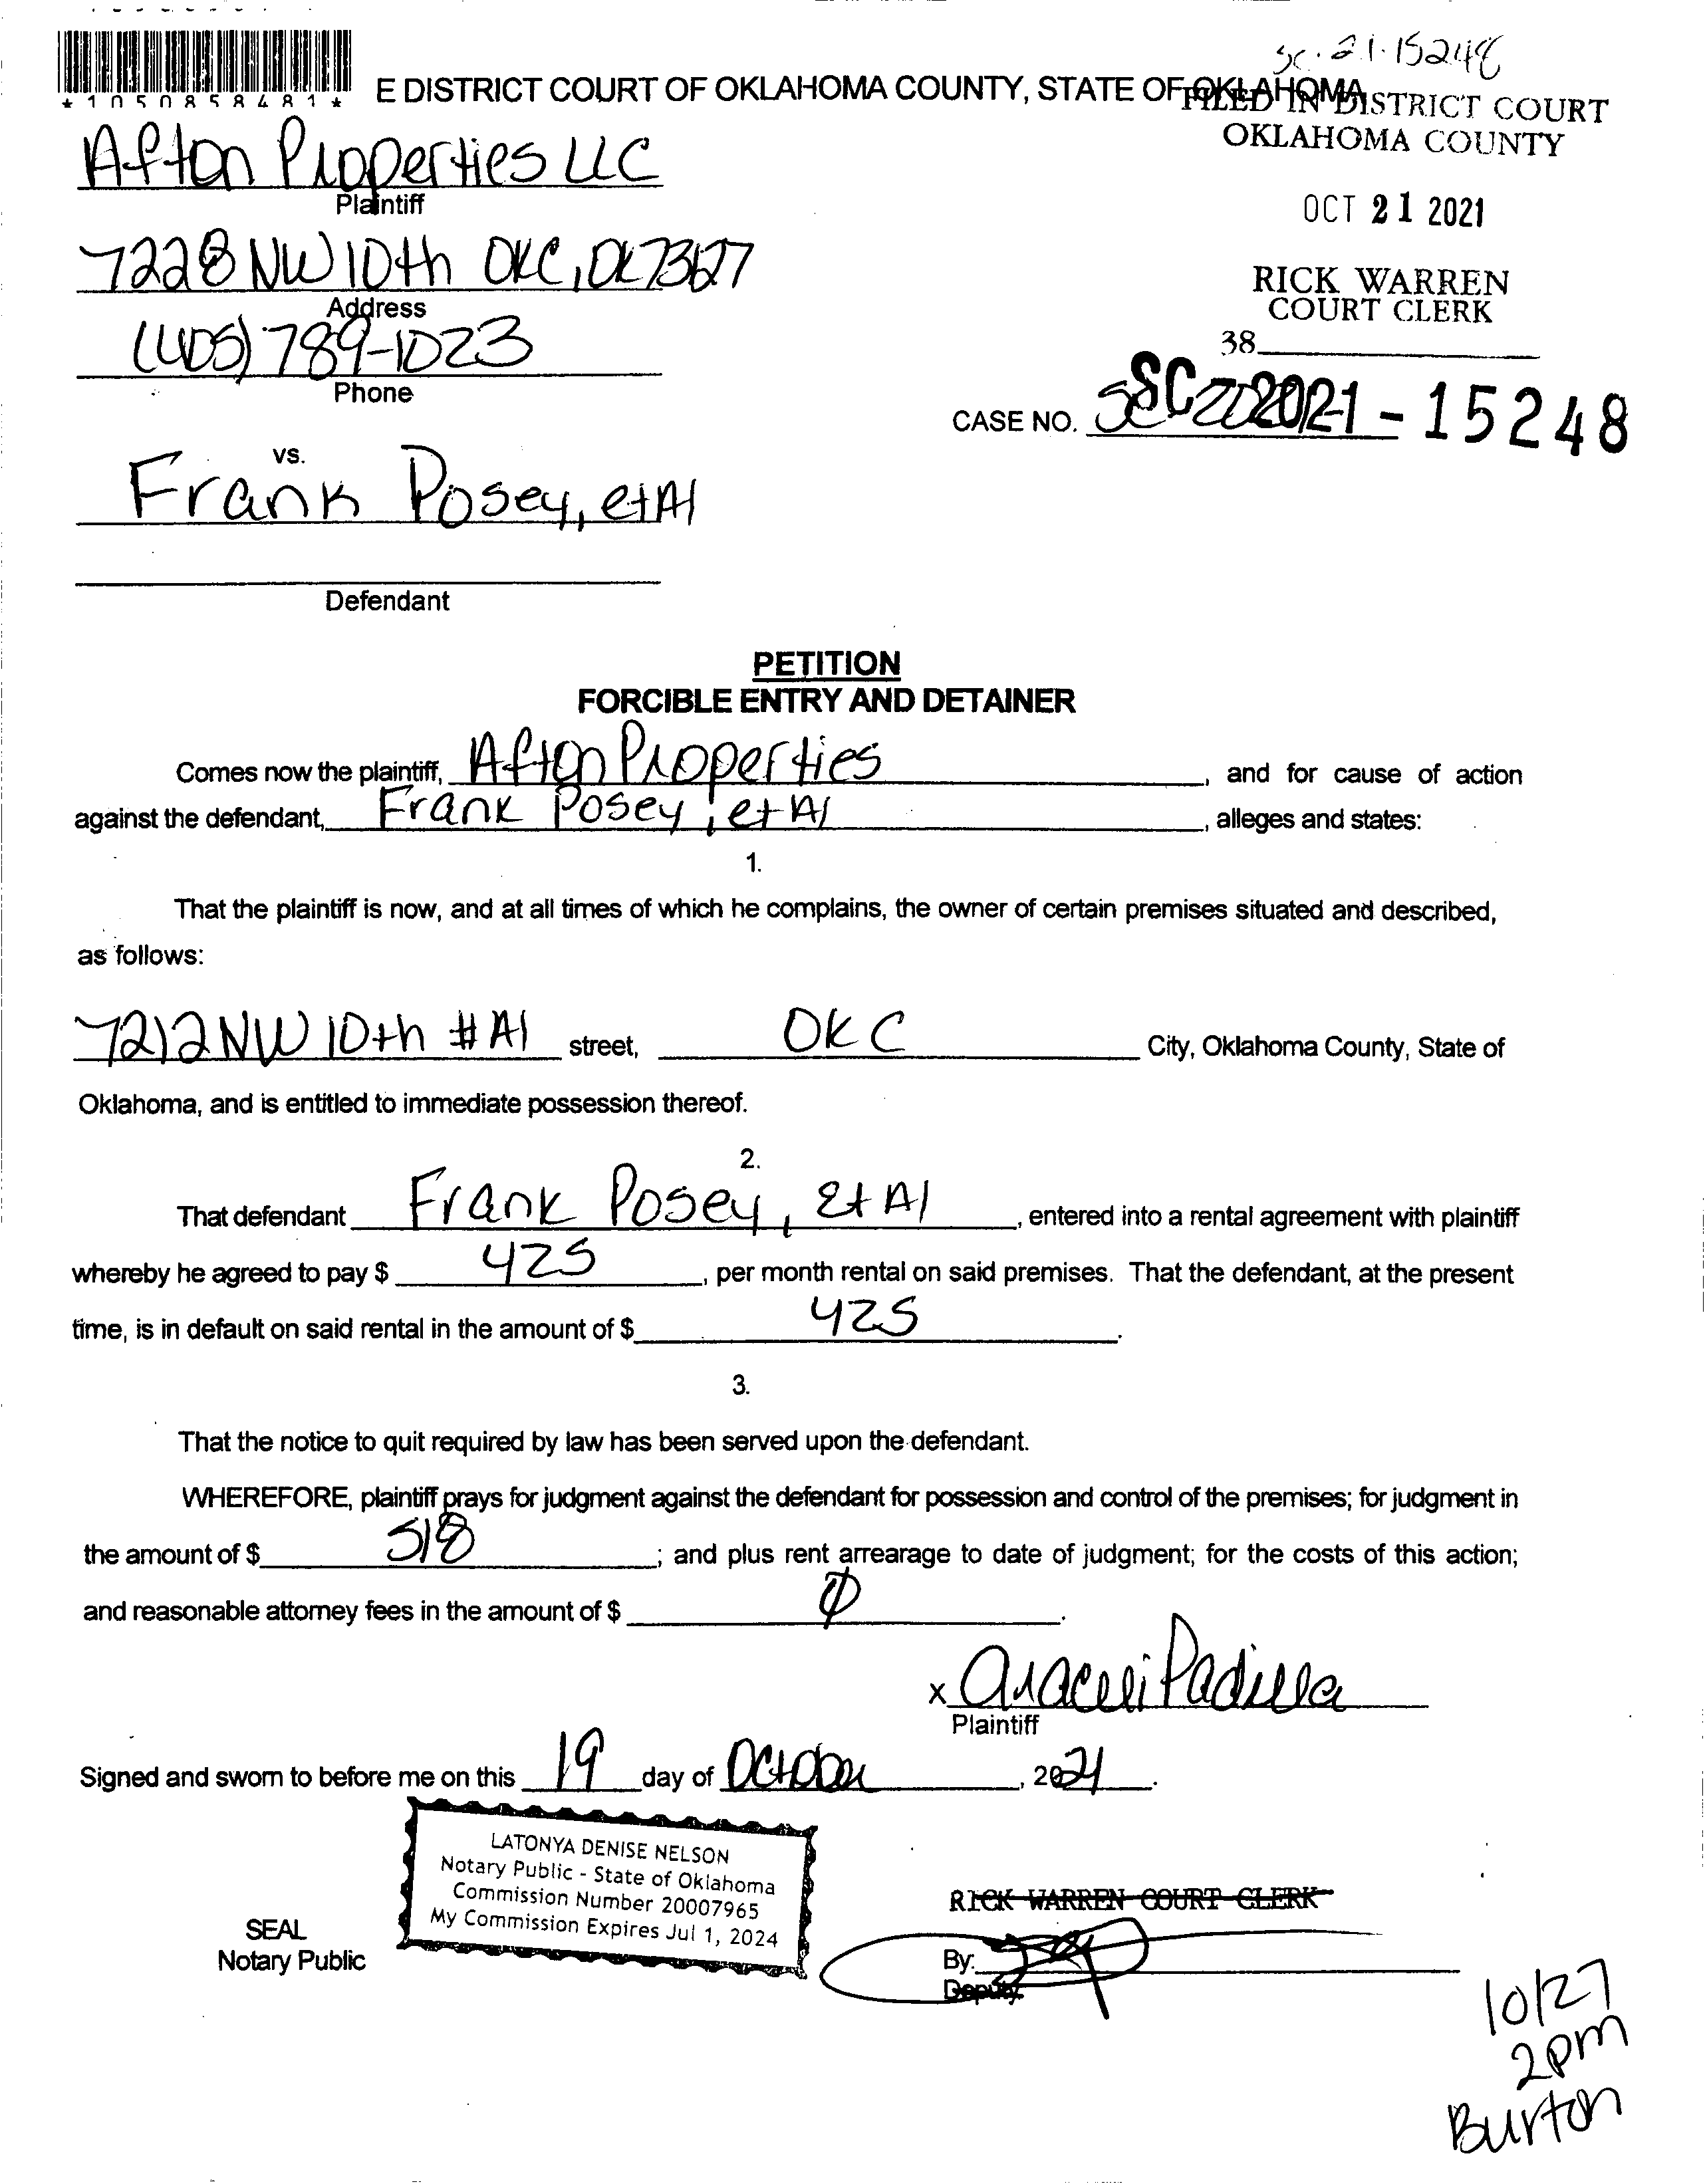 SC-21-15248
*1050858481*
E DISTRICT COURT OF OKLAHOMA COUNTY, STATE OF OKLAHOMA
FILED IN DISTRICT COURT
OKLAHOMA COUNTY
Afton Properties LLC
Plaintiff
OCT 21 2021
7228 NW 10th OKC, OK 73127
Address
RICK WARREN
COURT CLERK
(405) 789-1023
Phone
38
CASE NO. SC2021-15248
vs.
Frank Posey, et Al
Defendant
PETITION
FORCIBLE ENTRY AND DETAINER
Comes now the plaintiff, Afton Properties, and for cause of action
against the defendant, Frank Posey, et Al, alleges and states:
1.
That the plaintiff is now, and at all times of which he complains, the owner of certain premises situated and described,
as follows:
7212 NW 10th #A1 street, OKC City, Oklahoma County, State of
Oklahoma, and is entitled to immediate possession thereof.
2.
That defendant Frank Posey, Et Al, entered into a rental agreement with plaintiff
whereby he agreed to pay $ 425, per month rental on said premises. That the defendant, at the present
time, is in default on said rental in the amount of $ 425.
3.
That the notice to quit required by law has been served upon the defendant.
WHEREFORE, plaintiff prays for judgment against the defendant for possession and control of the premises; for judgment in
the amount of $ 518; and plus rent arrearage to date of judgment; for the costs of this action;
and reasonable attorney fees in the amount of $ Ø.
x Araceli Padilla
Plaintiff
Signed and sworn to before me on this 19 day of October, 2021.
LATONYA DENISE NELSON
Notary Public - State of Oklahoma
Commission Number 20007965
My Commission Expires Jul 1, 2024
SEAL
Notary Public
RICK WARREN COURT CLERK
By:
Deputy
10/27
2pm
Burton